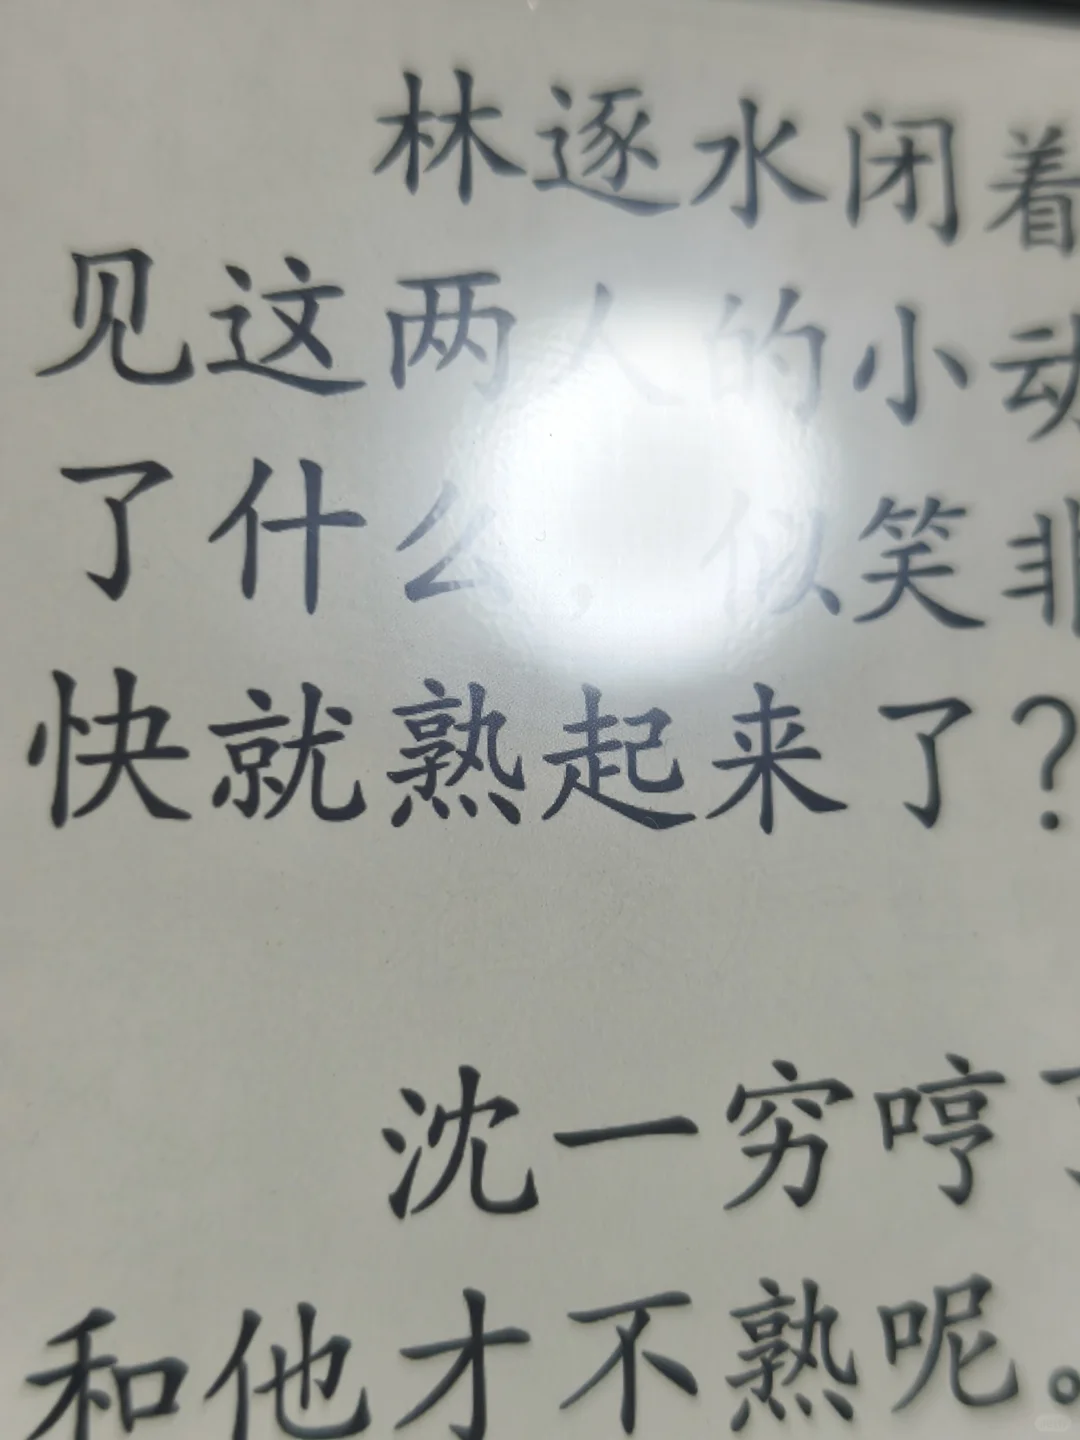 林逐水闭着
见这两人的小动
了什么，似笑非
快就熟起来了？
沈一穷哼了
和他才不熟呢。